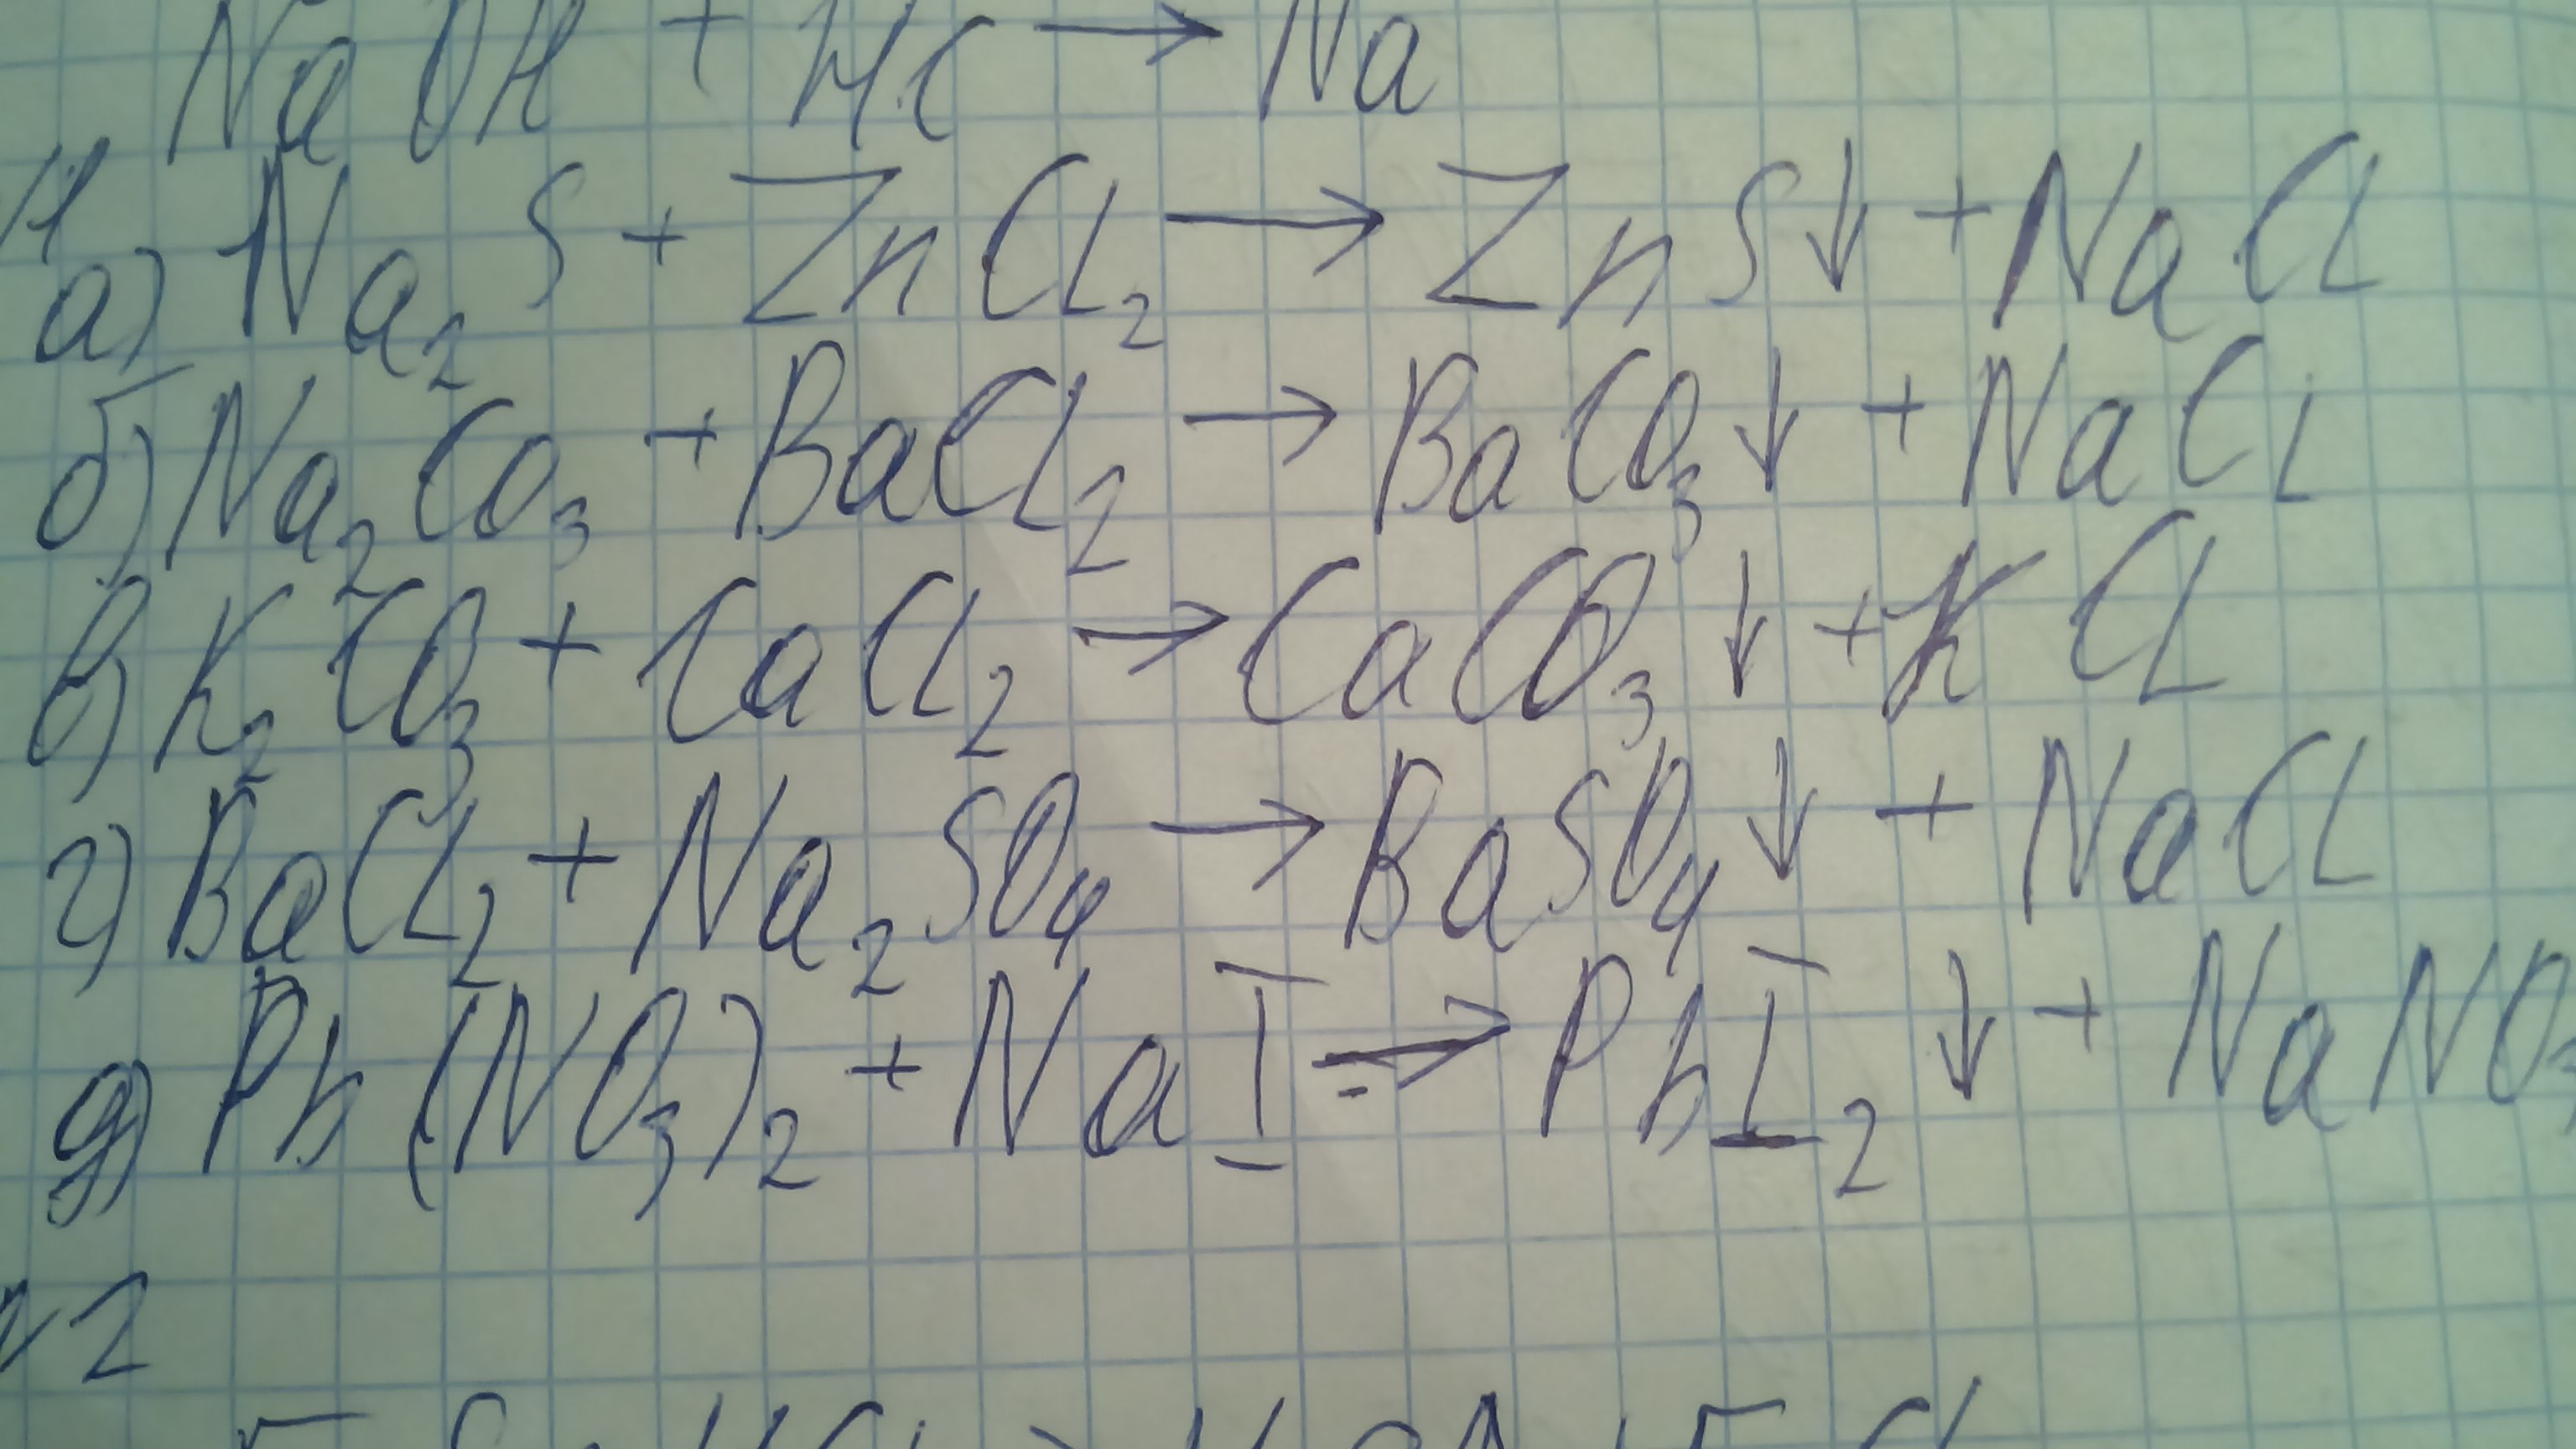 NaOH + HC → Na
а) Na₂S + ZnCl₂ → ZnS↓ + NaCl
б) Na₂CO₃ + BaCl₂ → BaCO₃↓ + NaCl
в) K₂CO₃ + CaCl₂ → CaCO₃↓ + KCl
г) BaCl₂ + Na₂SO₄ → BaSO₄↓ + NaCl
д) Pb(NO₃)₂ + NaI → PbI₂↓ + NaNO₃
№2